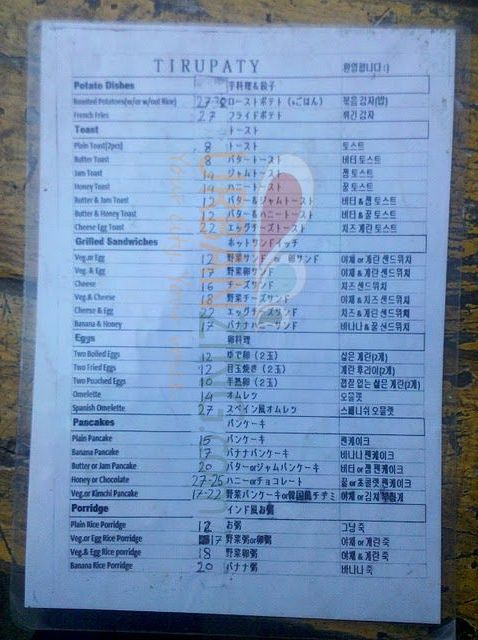 TIRUPATY 환영합니다 :)
Potato Dishes 芋料理&餃子
Roasted Potatoes(w/or w/out Rice) 27-30 ローストポテト (+ごはん) 볶음 감자(밥)
French Fries 27 フライドポテト 튀긴 감자
Toast トースト
Plain Toast(2pcs) 8 トースト 토스트
Butter Toast 8 バタートースト 버터 토스트
Jam Toast 14 ジャムトースト 쨈 토스트
Honey Toast 14 ハニートースト 꿀 토스트
Butter & Jam Toast 12 バター&ジャムトースト 버터 & 쨈 토스트
Butter & Honey Toast 12 バター&ハニートースト 버터 & 꿀 토스트
Cheese Egg Toast 22 エッグチーズトースト 치즈 계란 토스트
Grilled Sandwiches ホットサンドイッチ
Veg.or Egg 12 野菜サンド or 卵サンド 야채 or 계란 샌드위치
Veg. & Egg 17 野菜卵サンド 야채 & 계란 샌드위치
Cheese 16 チーズサンド 치즈 샌드위치
Veg.& Cheese 18 野菜チーズサンド 야채 & 치즈 샌드위치
Cheese & Egg 22 エッグチーズサンド 치즈 & 계란 샌드위치
Banana & Honey 17 バナナハニーサンド 바나나 & 꿀 샌드위치
Eggs 卵料理
Two Boiled Eggs 12 ゆで卵 (2玉) 삶은 계란(2개)
Two Fried Eggs 12 目玉焼き (2玉) 계란 후라이(2개)
Two Pouched Eggs 10 半熟卵 (2玉) 껍질 없는 삶은 계란(2개)
Omelette 14 オムレツ 오믈렛
Spanish Omelette 27 スペイン風オムレツ 스페니쉬 오믈렛
Pancakes パンケーキ
Plain Pancake 15 パンケーキ 팬케이크
Banana Pancake 17 バナナパンケーキ 바나나 팬케이크
Butter or Jam Pancake 20 バターorジャムパンケーキ 버터 or 쨈 팬케이크
Honey or Chocolate 27-25 ハニーorチョコレート 꿀 or 초콜렛 팬케이크
Veg.or Kimchi Pancake 17-22 野菜パンケーキor韓国風チヂミ 야채 or 김치
Porridge インド風お粥
Plain Rice Porridge 12 お粥 그냥 죽
Veg.or Egg Rice Porridge 17 野菜粥or卵粥 야채 or 계란 죽
Veg.& Egg Rice porridge 18 野菜卵粥 야채 & 계란 죽
Banana Rice Porridge 20 バナナ粥 바나나 죽